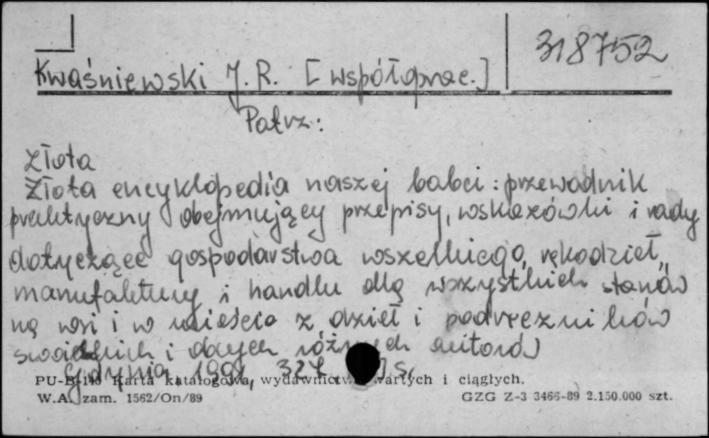 318752
Kwaśniewski J. R. [współprac.]
Patrz:
Złota
Złota encyklopedia naszej babci: przewodnik
praktyczny obejmujący przepisy, wskazówki i rady
dotyczące gospodarstwa wszelkiego, rękodzieł,
manufaktury i handlu dla wszystkich stanów
na wsi i w mieście z dzieł i podręczników
i dawnych różnych autorów
Gdynia, 1991, 324, s.
PU-B Karta katalogowa, wydawnictw zwartych i ciągłych.
W.A. zam. 1562/On/89 GZG Z-3 3466-89 2.150.000 szt.